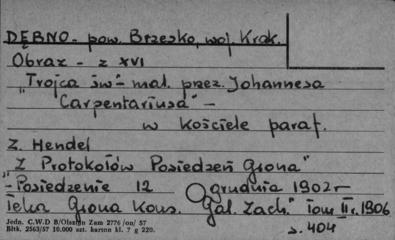 DĘBNO - pow. Brzesko, woj. Krak.
Obraz - z XVI
"Trójca św" - mal. przez Johannesa
Carpentariusa" -
w kościele paraf.
Z. Hendel
"Z Protokołów Posiedzeń Grona"
"- Posiedzenie 12 grudnia 1902 r
Teka Grona Kons. Gal. Zach." Tom II r. 1906
s. 404
Jedn. C.W.D B/Olsztyn Zam 2776 /on/ 57
Bltk. 2563/57 10.000 szt. karton kl. 7 g 220.